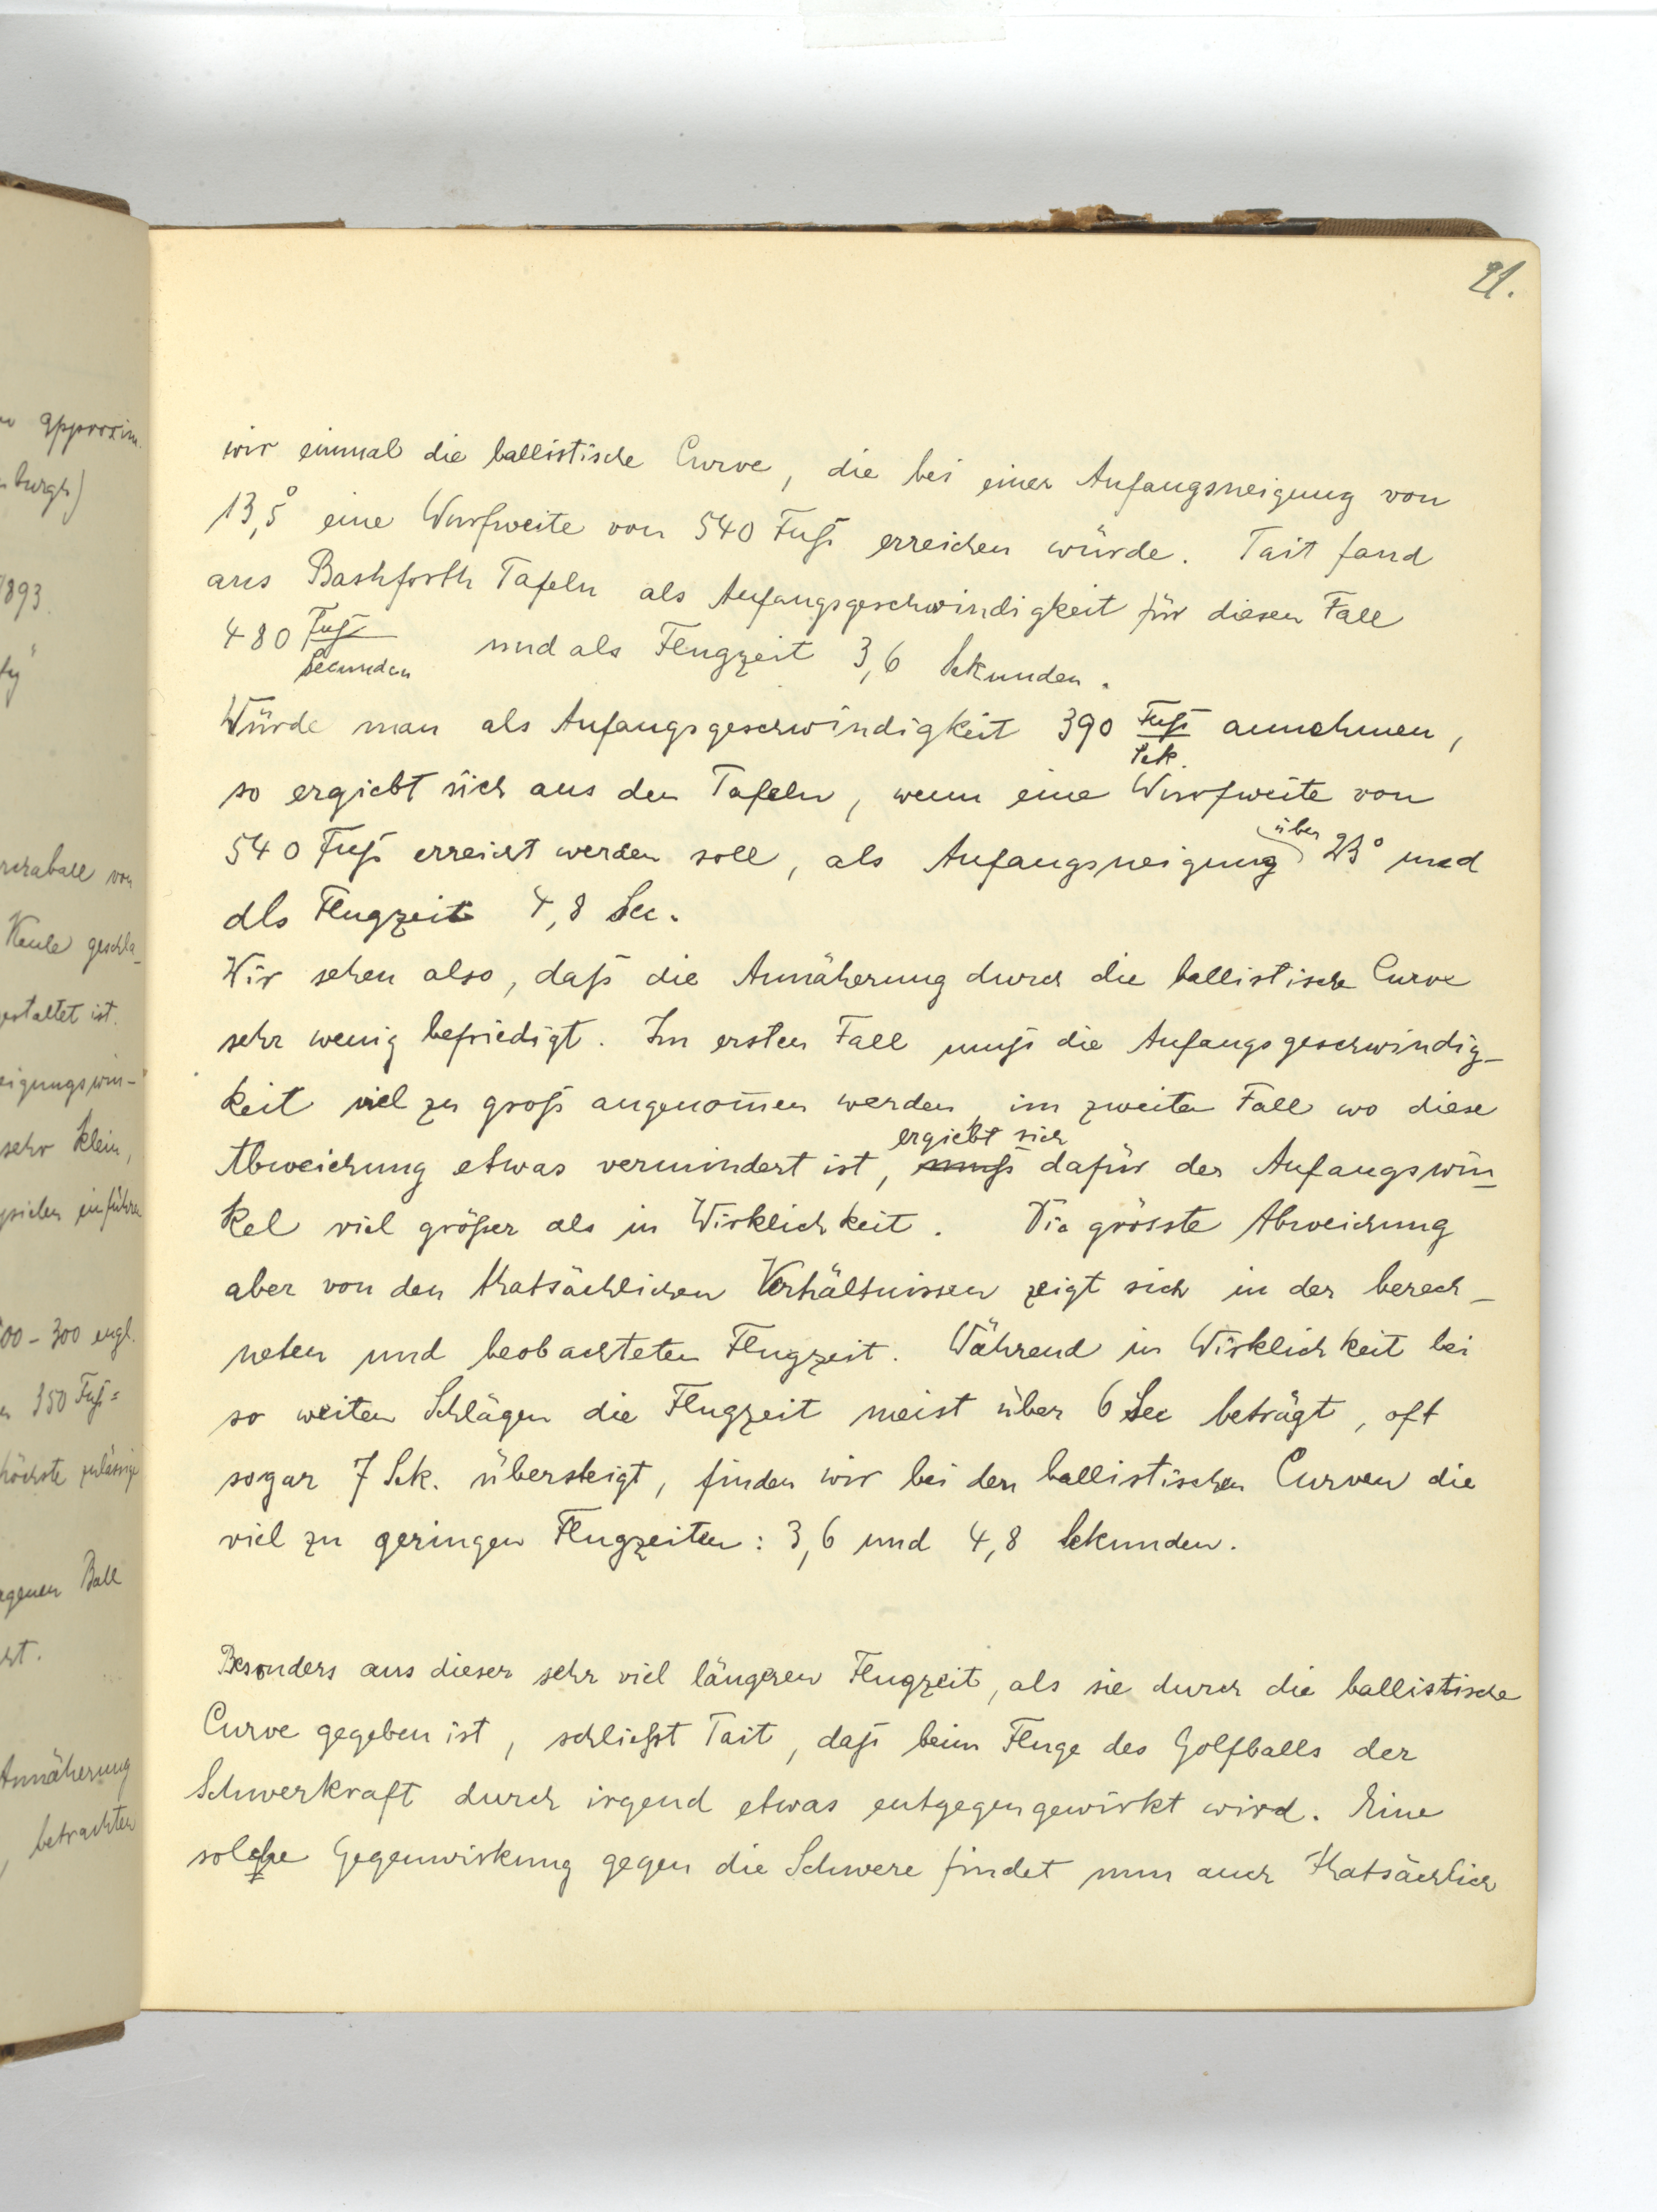 21.
wir einmal die ballistische Curve, die bei einer Anfangsneigung von
13,5° eine Wurfweite von 540 Fuß erreichen würde. Tait fand
aus Bashforth Tafeln als Anfangsgeschwindigkeit für diesen Fall
480 Fuß/Secunden und als Flugzeit 3,6 Sekunden.
Würde man als Anfangsgeschwindigkeit 390 Fuß/Sek. annehmen,
so ergiebt sich aus den Tafeln, wenn eine Wurfweite von
540 Fuß erreicht werden soll, als Anfangsneigung über 23° und
als Flugzeit 4,8 Sec.
Wir sehen also, daß die Annäherung durch die ballistische Curve
sehr wenig befriedigt. Im ersten Fall muß die Anfangsgeschwindig-
keit viel zu groß angenom̅en werden, im zweiten Fall wo diese
Abweichung etwas vermindert ist, muß ergiebt sich dafür der Anfangswin-
kel viel größer als in Wirklichkeit. Die grösste Abweichung
aber von den thatsächlichen Verhältnissen zeigt sich in der berech-
neten und beobachteten Flugzeit. Während in Wirklichkeit bei
so weiten Schlägen die Flugzeit meist über 6 Sec beträgt, oft
sogar 7 Sek. übersteigt, finden wir bei den ballistischen Curven die
viel zu geringen Flugzeiten: 3,6 und 4,8 Sekunden.
Besonders aus dieser sehr viel längeren Flugzeit, als sie durch die ballistische
Curve gegeben ist, schließt Tait, daß beim Fluge des Golfballs der
Schwerkraft durch irgend etwas entgegengewirkt wird. Eine
solche Gegenwirkung gegen die Schwere findet nun auch thatsächlich
approxim.
burgh)
1893.
von
Keule geschla-
gestaltet ist.
sehr klein,
einführen
00-300 engl.
350 Fuß=
höchste zulässige
Ball
Annäherung
, betrachten